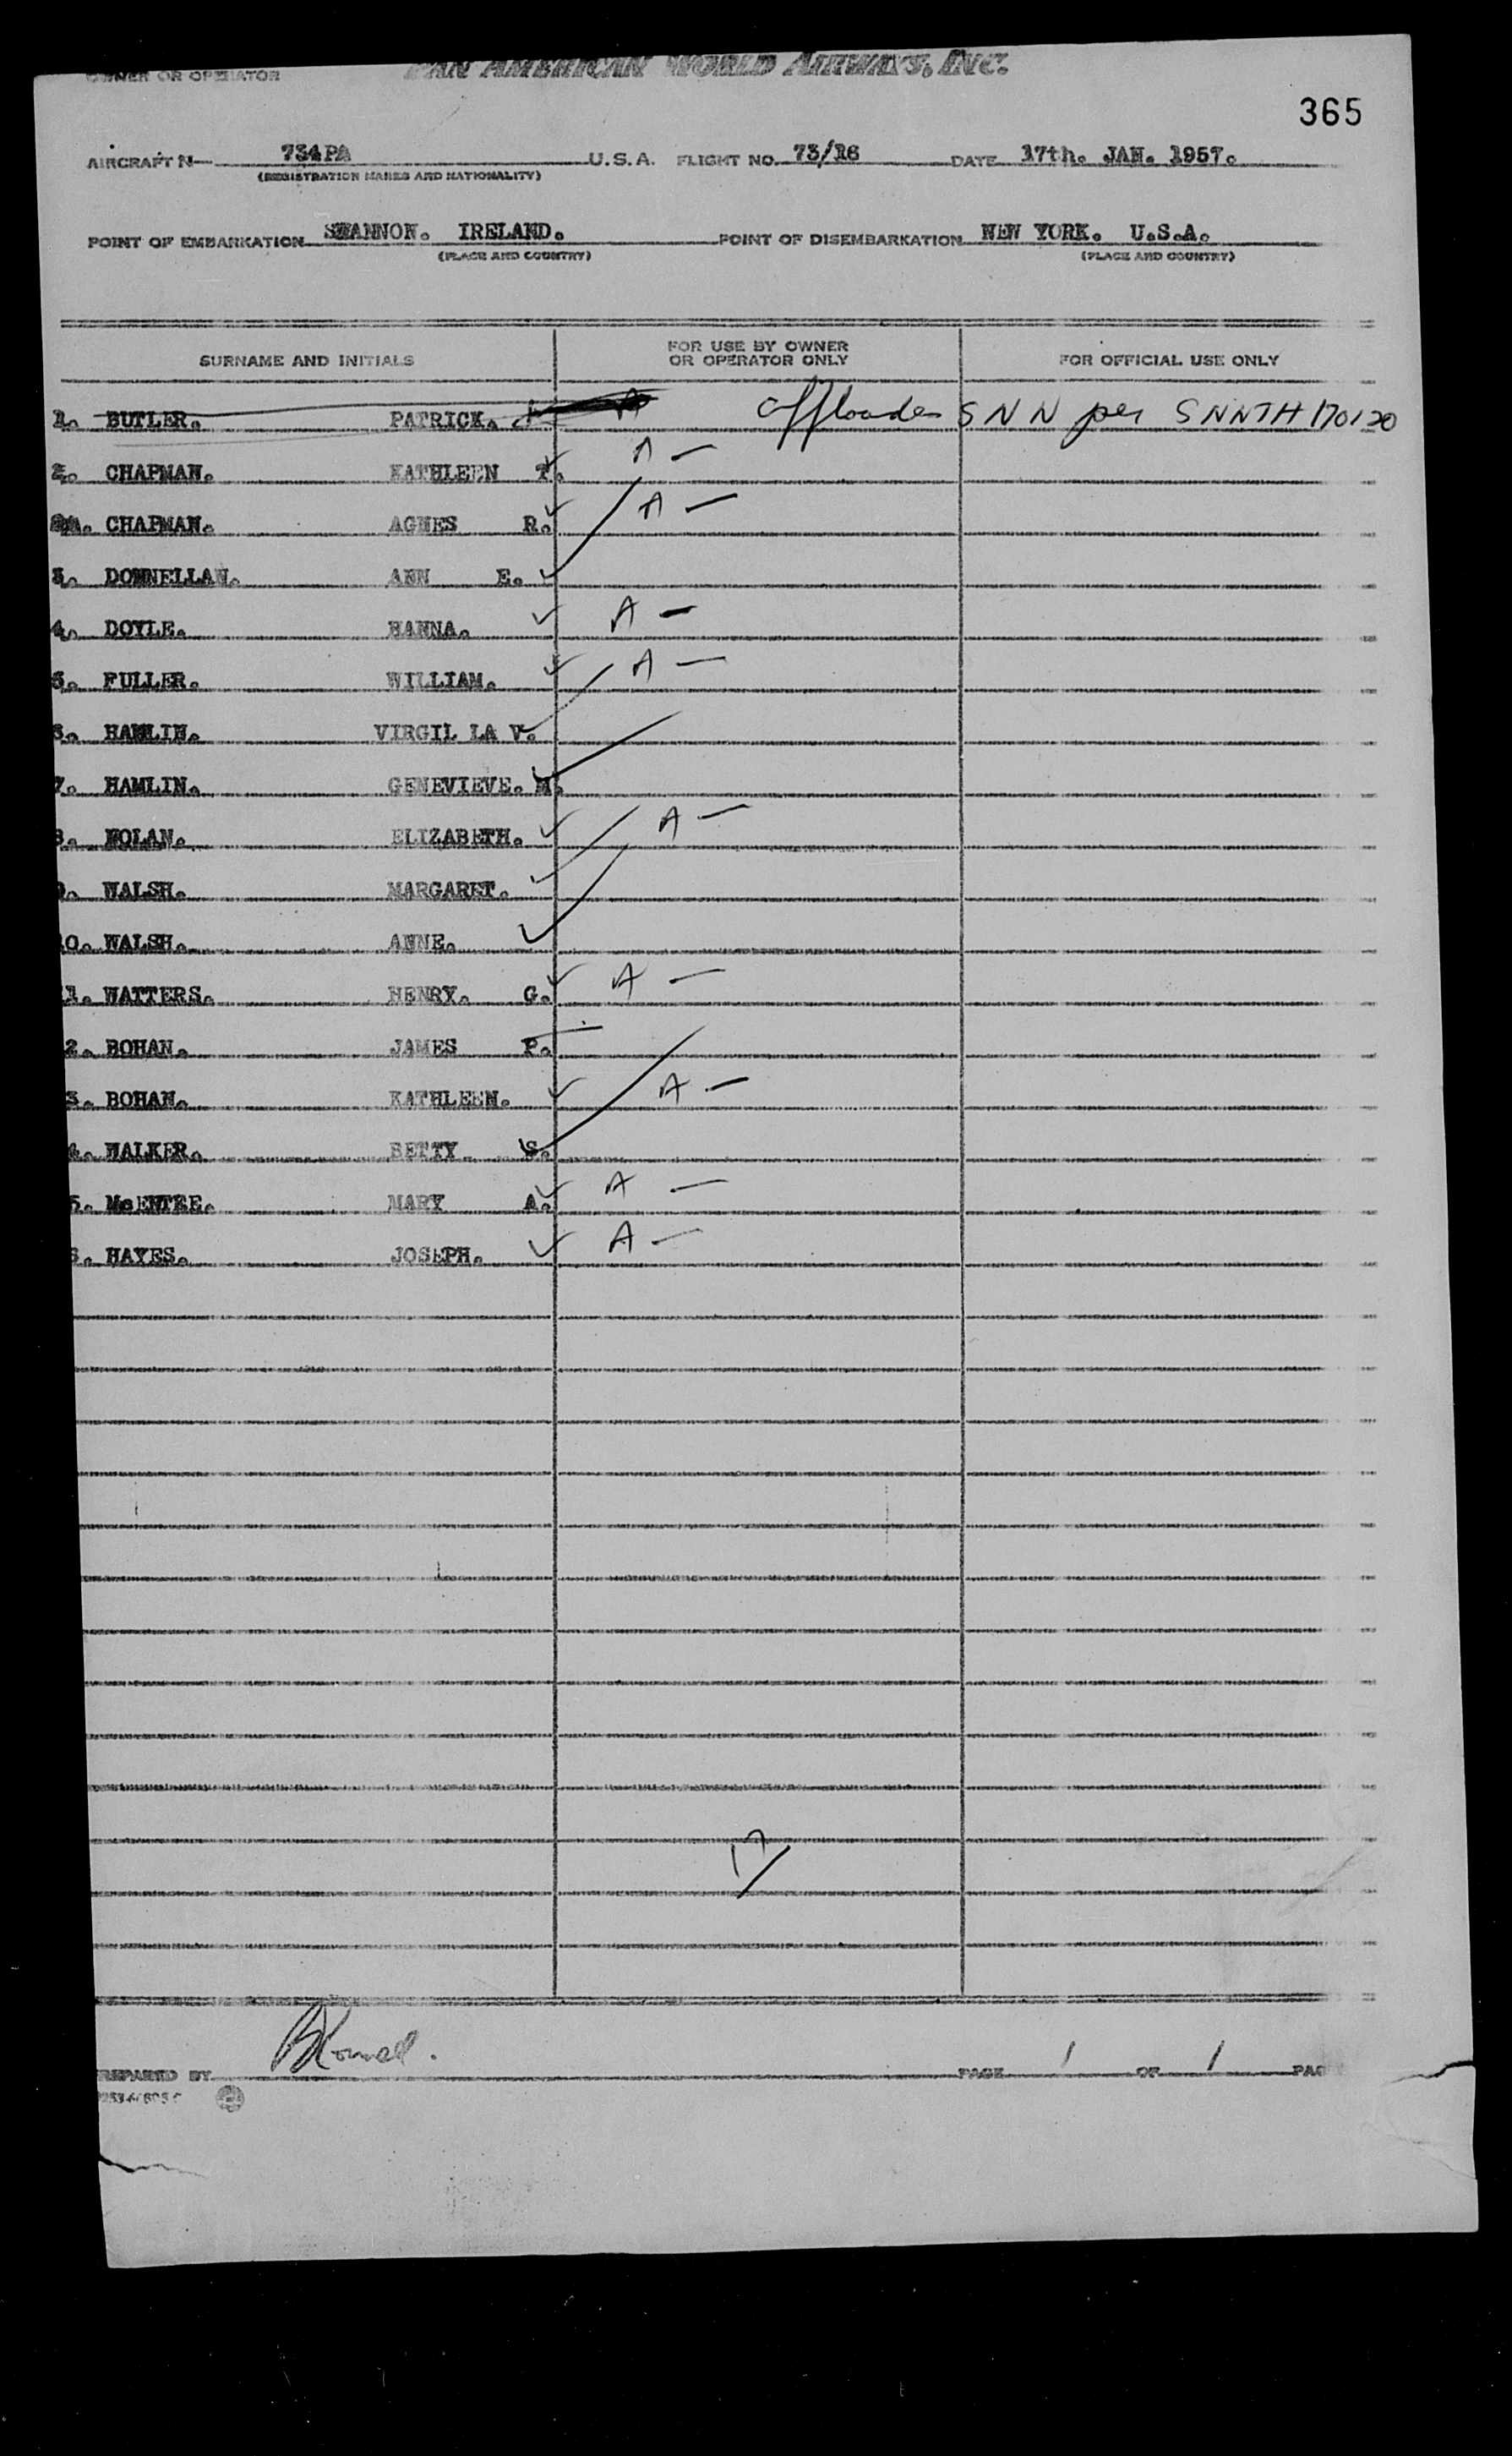 OWNER OR OPERATOR PAN AMERICAN WORLD AIRWAYS, INC.
365
AIRCRAFT N— 734PA U.S.A. FLIGHT NO. 73/16 DATE 17th. JAN. 1957.
(REGISTRATION MARKS AND NATIONALITY)
POINT OF EMBARKATION SHANNON. IRELAND. POINT OF DISEMBARKATION NEW YORK. U.S.A.
(PLACE AND COUNTRY) (PLACE AND COUNTRY)
SURNAME AND INITIALS FOR USE BY OWNER OR OPERATOR ONLY FOR OFFICIAL USE ONLY
1. BUTLER. PATRICK. A offloaded SNN per SNNTH 170120
2. CHAPMAN. KATHLEEN T. A —
2A. CHAPMAN. AGNES R. A —
3. DONNELLAN. ANN E.
4. DOYLE. HANNA. A —
5. FULLER. WILLIAM. A —
6. HAMLIN. VIRGIL LA V.
7. HAMLIN. GENEVIEVE. M.
8. NOLAN. ELIZABETH. A —
9. WALSH. MARGARET.
10. WALSH. ANNE.
11. WATTERS. HENRY. G. A —
2. BOHAN. JAMES P.
3. BOHAN. KATHLEEN. A —
4. WALKER. BETTY S.
5. McENTEE. MARY A. A —
6. HAYES. JOSEPH. A —
17
PREPARED BY PAGE 1 OF 1 PAG